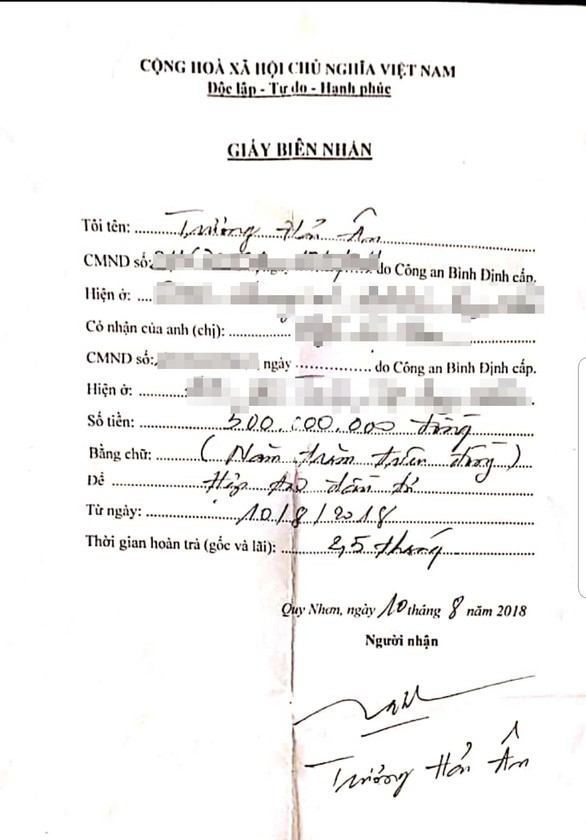 CỘNG HOÀ XÃ HỘI CHỦ NGHĨA VIỆT NAM
Độc lập - Tự do - Hạnh phúc
GIẤY BIÊN NHẬN
Tôi tên: Trương Hải Ân
CMND số: do Công an Bình Định cấp.
Hiện ở:
Có nhận của anh (chị):
CMND số: ngày do Công an Bình Định cấp.
Hiện ở:
Số tiền: 500.000.000 đồng
Bằng chữ: (Năm trăm triệu đồng)
Để
Từ ngày: 10/8/2018
Thời gian hoàn trả (gốc và lãi): 2,5 tháng
Quy Nhơn, ngày 10 tháng 8 năm 2018
Người nhận
Trương Hải Ân